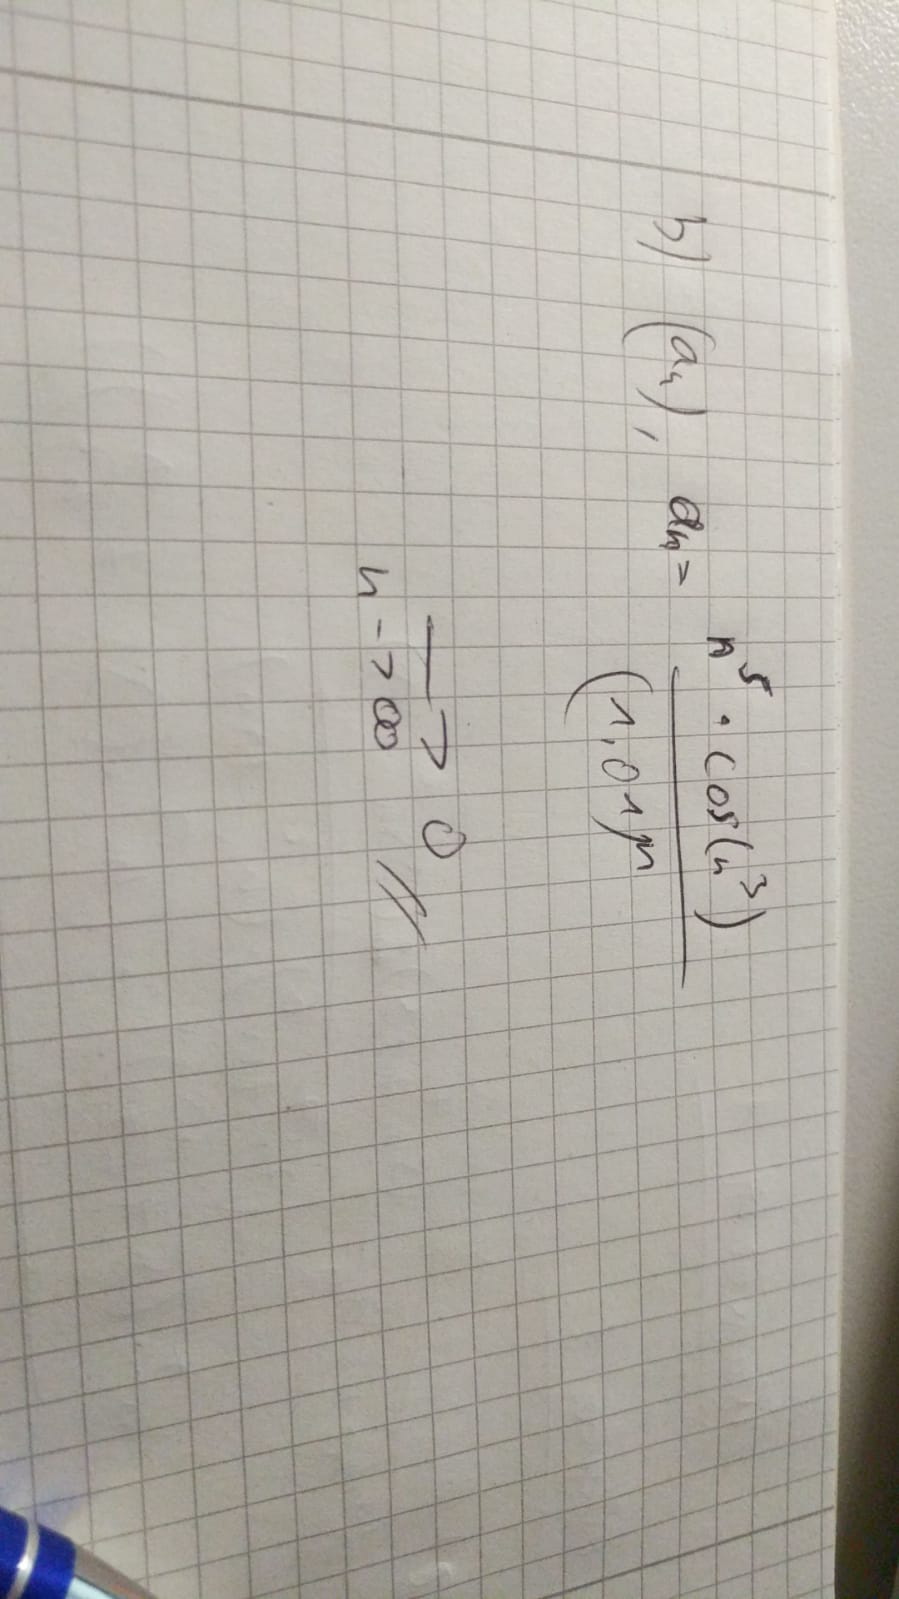 b) (aₙ), aₙ = n⁵ · cos(n³)
(1,01)ⁿ
→ 0
n -> ∞